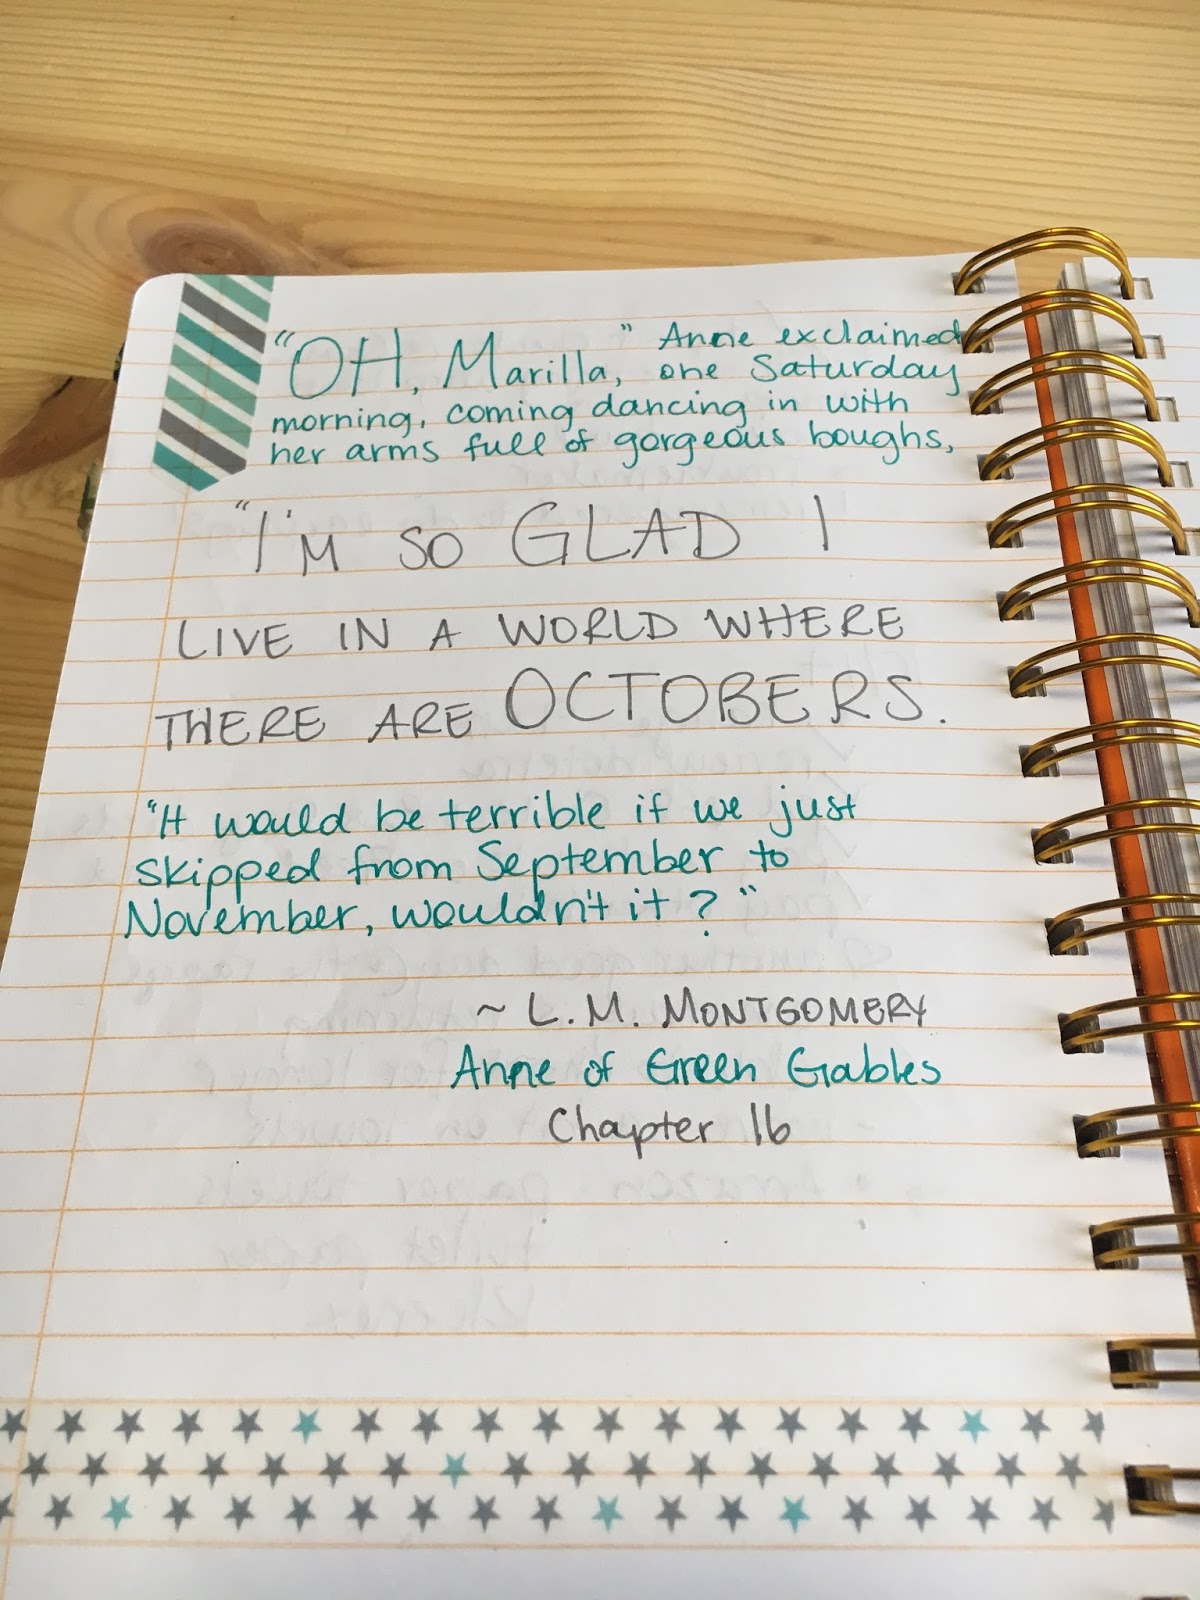 "OH, Marilla," Anne exclaimed
one Saturday
morning, coming dancing in with
her arms full of gorgeous boughs,
"I'M SO GLAD I
LIVE IN A WORLD WHERE
THERE ARE OCTOBERS.
"It would be terrible if we just
skipped from September to
November, wouldn't it?"
~ L.M. MONTGOMERY
Anne of Green Gables
Chapter 16